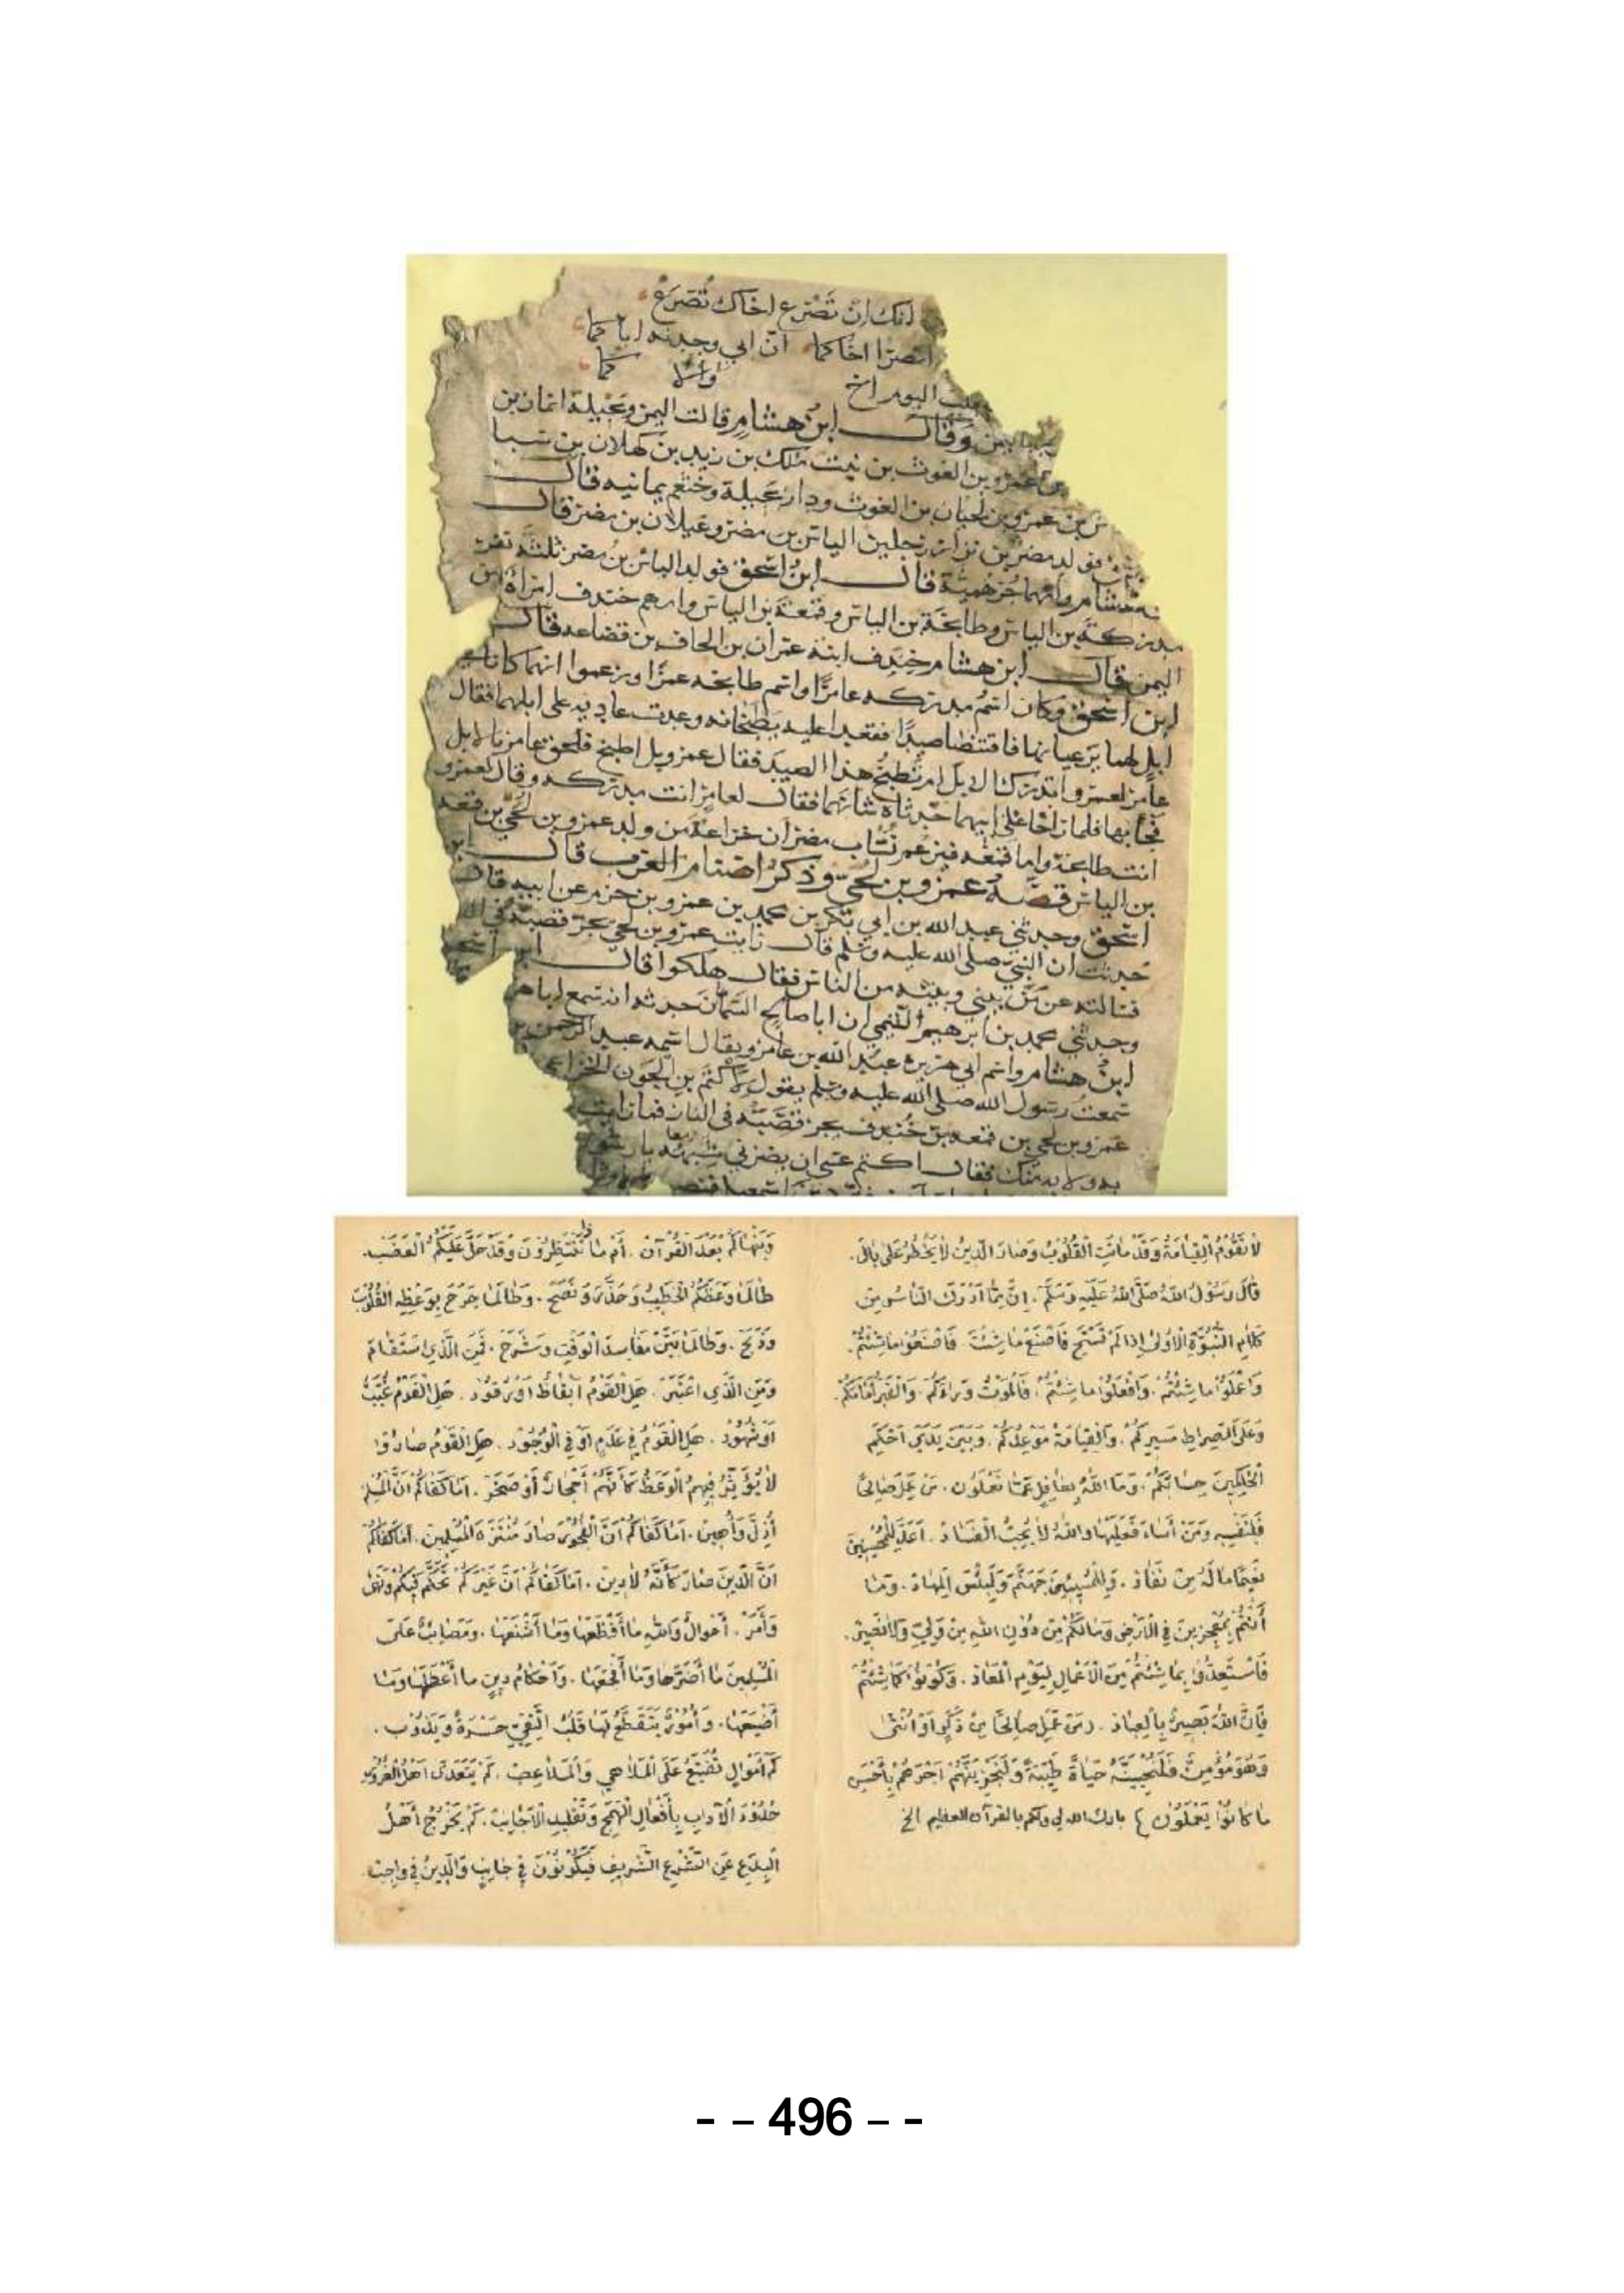 انك ان تصرع اخاك تصرع
انصرا اخاكما ان ابي وجدته اباكما
اليوم اخ
وقال ابن هشام قالت اليمن وبجيلة انمار بن
عمرو بن الغوث بن نبت ملك بن زيد بن كهلان بن سبا
بن عمرو بن لحيان بن الغوث ودار بجيلة وخثعم يمانيه قال
فولد مضر بن نزار رجلين الياس بن مضر وعيلان بن مضر قال
هشام وامهما جرهمية قال ابن اسحق فولد الياس بن مضر ثلثة نفر
مدركة بن الياس وطابخة بن الياس وقمعة بن الياس وامهم خندف امراة من
اليمن قال ابن هشام خندف ابنة عمران بن الحاف بن قضاعه قال
ابن اسحق وكان اسم مدركه عامرا واسم طابخه عمرا وزعموا انهما كانا في
ابل لهما يرعيانها فاقتنصا صيدا فقعدا عليه يطبخانه وعدت عاديه على ابلهما فقال
عامر لعمرو اتدرك الابل ام تطبخ هذا الصيد فقال عمرو بل اطبخ فلحق عامر بالابل
فجا بها فلما راحا على ابيهما حدثاه شانهما فقال لعامر انت مدركه وقال لعمرو
انت طابخة واما قمعه فيزعم نساب مضر ان خزاعة من ولد عمرو بن لحي بن قمعه
بن الياس قصه عمرو بن لحي وذكر اصنام العرب قال ابن
اسحق وحدثني عبد الله بن ابي بكر بن محمد بن عمرو بن حزم عن ابيه قال
حدثت ان النبي صلى الله عليه وسلم قال رايت عمرو بن لحي يجر قصبه في النار
فسالته عن من بيني وبينه من الناس فقال هلكوا قال ابن اسحق
وحدثني محمد بن ابرهيم التيمي ان ابا صالح السمان حدثه انه سمع ابا هر
ابن هشام واسم ابي هريرة عبد الله بن عامر ويقال اسمه عبد الرحمن بن
سمعت رسول الله صلى الله عليه وسلم يقول لاكثم بن الجون الخزاعي
عمرو بن لحي بن قمعه بن خندف يجر قصبه في النار فما رايت
به ولا بك منك فقال اكثم عسى ان يضرني شبهه يا رسول
لَا تَقُوْمُ الْقِيَامَةُ وَقَدْ مَاتَتِ الْقُلُوْبُ وَصَارَ الدِّيْنُ لَا يَخْطُرُ عَلَى بَالْ.
قَالَ رَسُوْلُ اللهْ صَلَّى اللهُ عَلَيْهِ وَسَلَّمَ. اِنَّ مِمَّا اَدْرَكَ النَّاسُ مِنْ
كَلَامِ النُّبُوَّةِ الْاُوْلَى اِذَا لَمْ تَسْتَحِ فَاصْنَعْ مَا شِئْتَ. فَاصْنَعُوْا مَا شِئْتُمْ.
وَاعْمَلُوْا مَا شِئْتُمْ. وَافْعَلُوْا مَا شِئْتُمْ. فَالْمَوْتُ وَرَاءَكُمْ. وَالْقَبْرُ اَمَامَكُمْ.
وَعَلَى الصِّرَاطِ مَسِيْرُكُمْ. وَالْقِيَامَةُ مَوْعِدُكُمْ. وَبَيْنَ يَدَيْ اَحْكَمِ
الْحَاكِمِيْنَ حِسَابُكُمْ. وَمَا اللهُ بِغَافِلٍ عَمَّا تَعْمَلُوْن. مَنْ عَمِلَ صَالِحًا
فَلِنَفْسِهِ وَمَنْ أَسَاءَ فَعَلَيْهَا وَاللهُ لَا يُحِبُّ الْفَسَادْ. اَعَدَّ لِلْمُحْسِنِيْنَ
نَعِيْمًا مَالَهُ مِنْ نَفَادْ. وَلِلْمُسِيْئِيْنَ جَهَنَّمَ وَلَبِئْسَ الْمِهَادْ. وَمَا
أَنْتُمْ بِمُعْجِزِيْنَ فِي الْاَرْضِ وَمَا لَكُمْ مِنْ دُوْنِ اللهِ مِنْ وَلِيٍّ وَلَا نَصِيْرْ.
فَاسْتَعِدُّوْا بِمَا شِئْتُمْ مِنَ الْاَعْمَالِ لِيَوْمِ الْمَعَادْ. وَكُوْنُوْا كَمَا شِئْتُمْ
فَإِنَّ اللهَ بَصِيْرٌ بِالْعِبَادْ. (مَنْ عَمِلَ صَالِحًا مِنْ ذَكَرٍ اَوْ اُنْثَى
وَهُوَ مُؤْمِنٌ فَلَنُحْيِيَنَّهُ حَيَاةً طَيِّبَةً وَلَنَجْزِيَنَّهُمْ اَجْرَهُمْ بِأَحْسَنِ
مَا كَانُوْا يَعْمَلُوْنَ) بارك الله لي ولكم بالقرآن العظيم الخ
بَعْدَ الْقُرْآنْ. أَمْ مَا تَنْتَظِرُوْنَ وَقَدْ حَلَّ عَلَيْكُمُ الْغَضَبْ.
طَالَمَا وَعَظَكُمُ الْخَطِيْبُ وَحَذَّرَ وَنَصَحْ. وَطَالَمَا جَرَحَ بِوَعْظِهِ الْقُلُوْبَ
وَذَبَحْ. وَطَالَمَا بَيَّنَ مَفَاسِدَ الْوَقْتِ وَشَرَحْ. فَمَنِ الَّذِي اسْتَقَامَ
وَمَنِ الَّذِي اعْتَبَرْ. هَلِ الْقَوْمُ اَيْقَاظٌ اَوْ رُقُوْدْ. هَلِ الْقَوْمُ غُيَّبٌ
اَوْ شُهُوْدْ. هَلِ الْقَوْمُ فِي عَدَمٍ اَوْ فِي الْوُجُوْدْ. هَلِ الْقَوْمُ صَارُوْا
لَا يُؤَثِّرُ فِيْهِمُ الْوَعْظُ كَأَنَّهُمْ أَحْجَارٌ أَوْ صَخَرْ. اَمَا كَفَاكُمْ اَنَّ الْمُسْلِمَ
أُذِلَّ وَأُهِيْنْ. اَمَا كَفَاكُمْ اَنَّ الْفُجُوْرَ صَارَ مُنْتَزَهَ الْمُسْلِمِيْنْ. اَمَا كَفَاكُمْ
اَنَّ الدِّيْنَ صَارَ كَأَنَّهُ لَا دِيْنْ. اَمَا كَفَاكُمْ اَنَّ غَيْرَكُمْ تَحَكَّمَ فِيْكُمْ وَنَهَى
وَأَمَرْ. اَحْوَالٌ وَاللهِ مَا أَفْظَعَهَا وَمَا أَشْنَعَهَا. وَمَصَائِبُ عَلَى
الْمُسْلِمِيْنَ مَا أَضَرَّهَا وَمَا أَفْجَعَهَا. وَاَحْكَامُ دِيْنٍ مَا أَعْظَمَهَا وَمَا
أَضْيَعَهَا. وَأُمُوْرٌ يَتَقَطَّعُ لَهَا قَلْبُ التَّقِيِّ حَسْرَةً وَيَذُوْب.
كَمْ أَمْوَالٍ تُضَيَّعُ عَلَى الْمَلَاهِي وَالْمَلَاعِبْ. كَمْ يَتَعَدَّى اَهْلُ الْغُرُوْرِ
حُدُوْدَ الْآدَابِ بِأَفْعَالِ الْهَمَجِ وَتَقْلِيْدِ الْاَجَانِبْ. كَمْ يَخْرُجُ أَهْلُ
الْبِدَعِ عَنِ الشَّرْعِ الشَّرِيْفِ فَيَكُوْنُوْنَ فِي جَانِبٍ وَالدِّيْنُ فِي
- – 496 – -